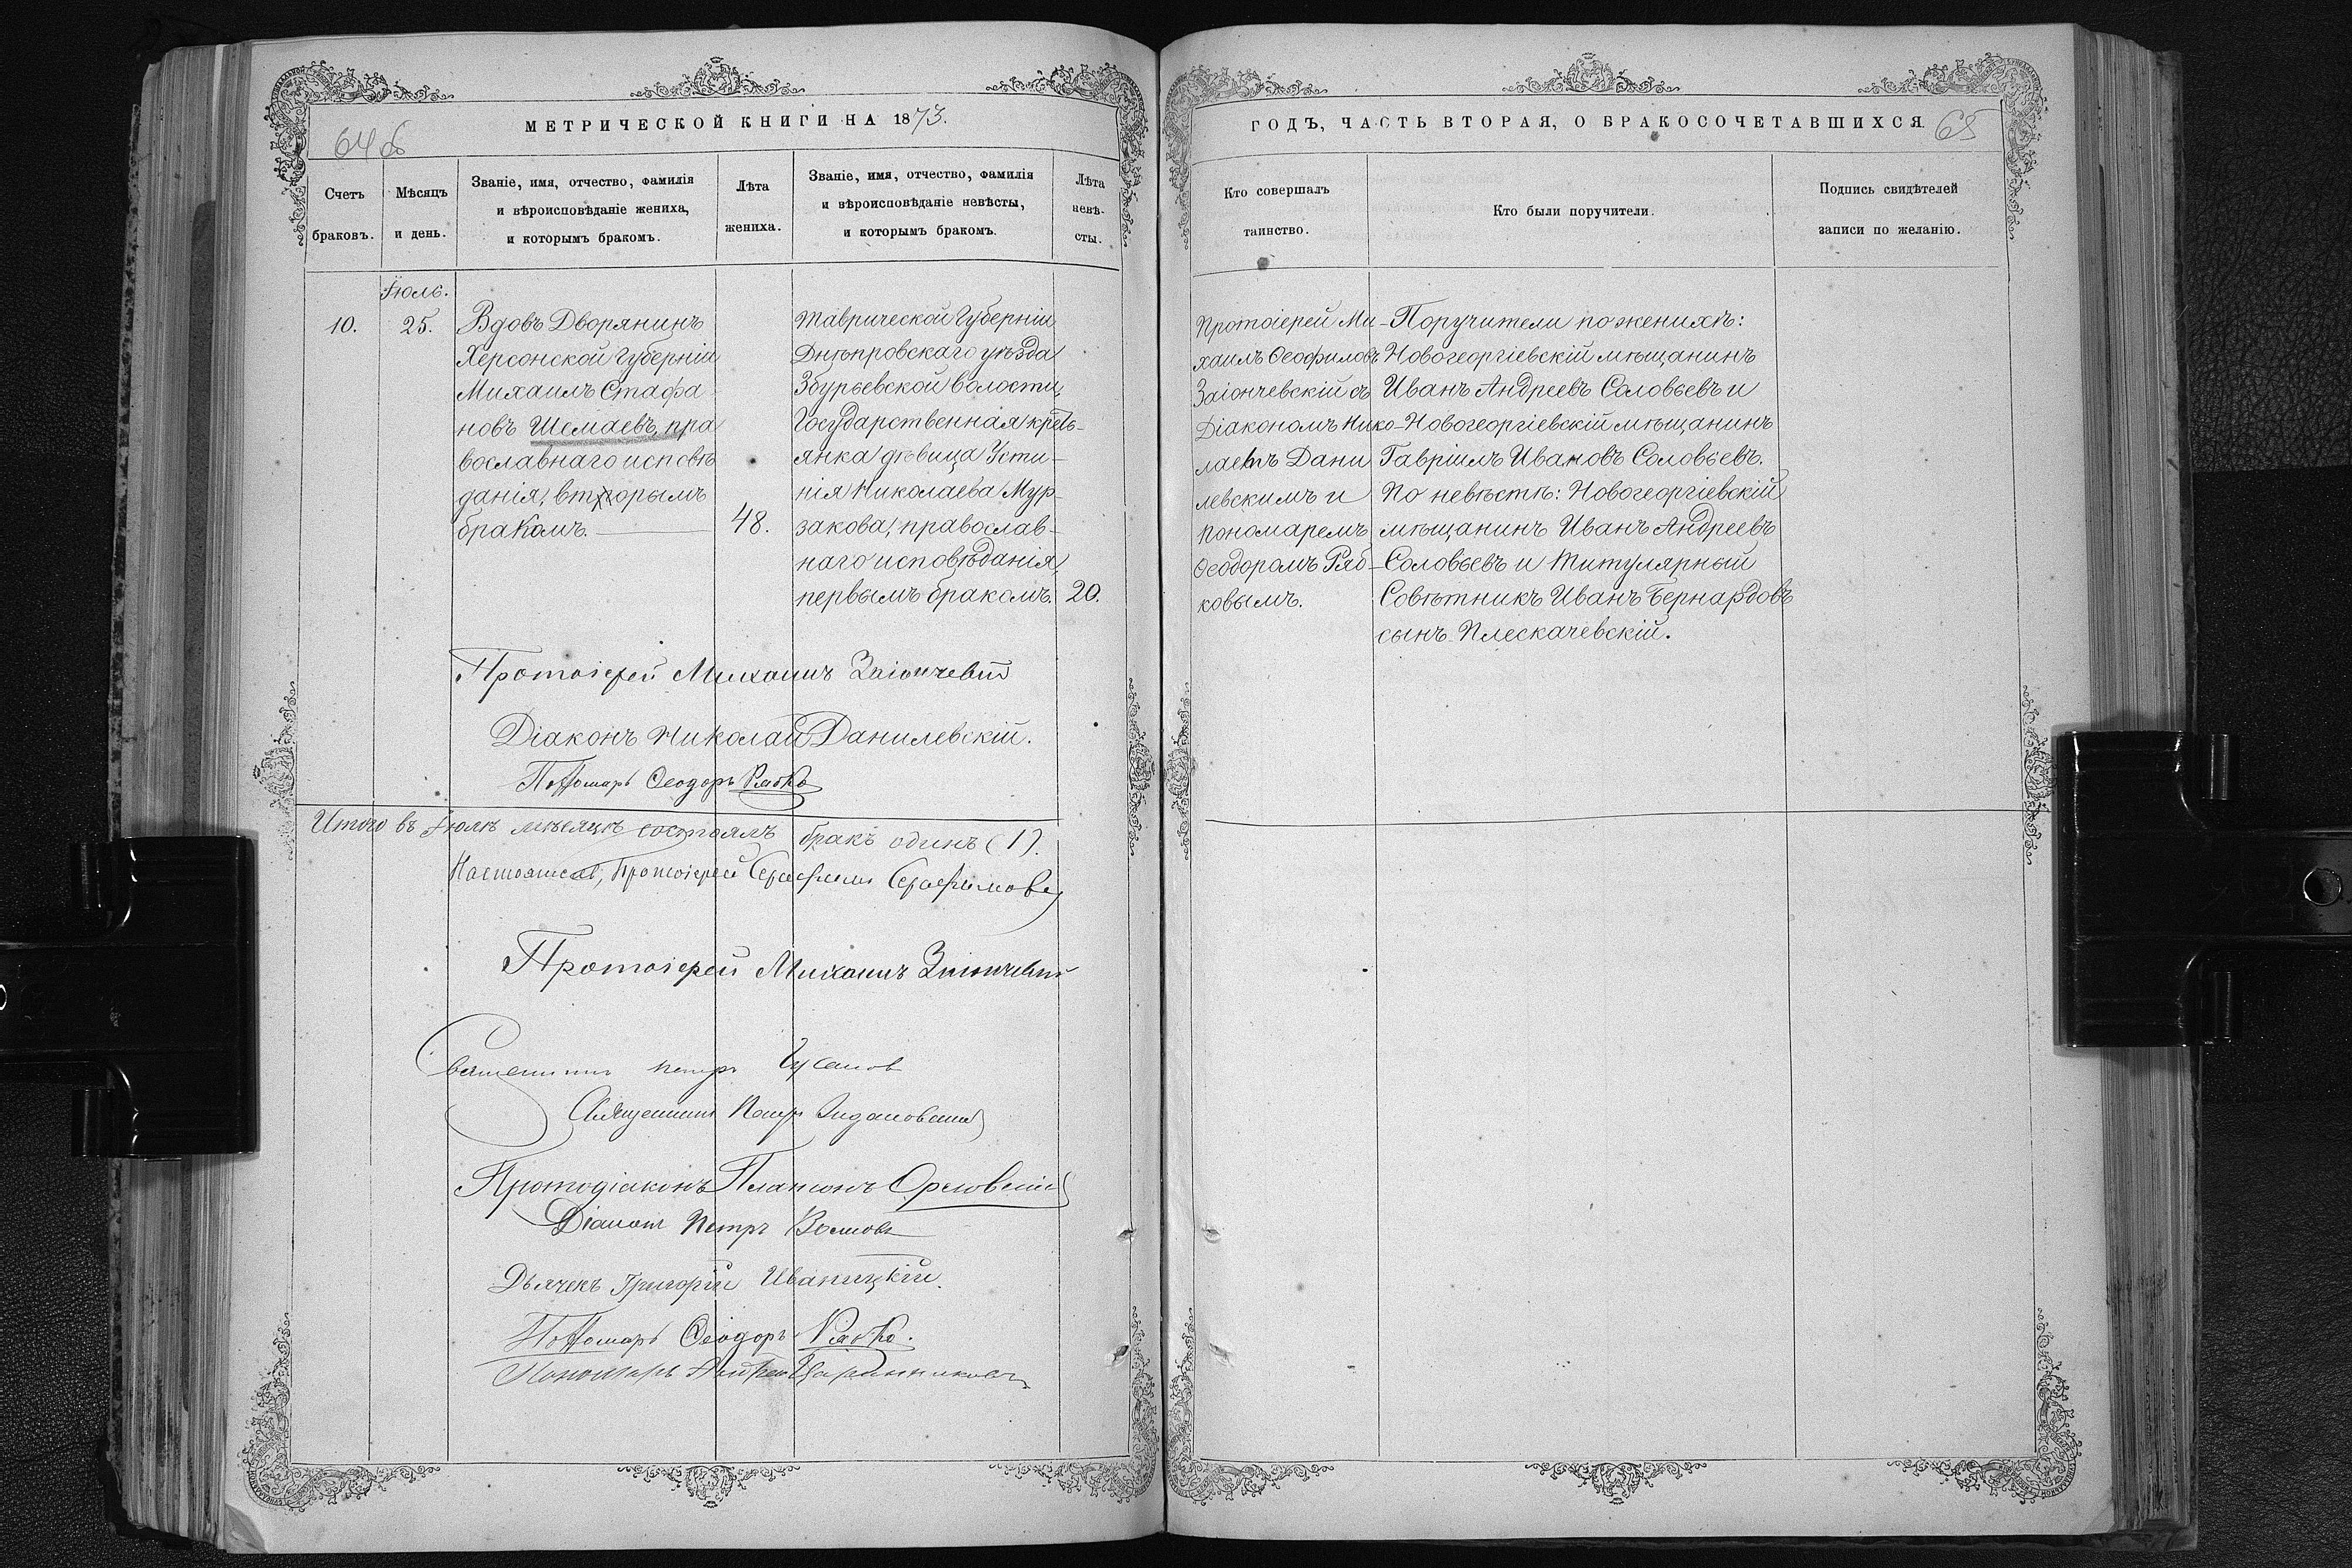 МЕТРИЧЕСКОЙ КНИГИ НА 1873.
Счетъ браковъ.
Мѣсяцъ и день.
Званіе, имя, отчество, фамилія
и вѣроисповѣданіе жениха,
и которымъ бракомъ.
Лѣта
жениха.
Званіе, имя, отчество, фамилія
и вѣроисповѣданіе невѣсты,
и которымъ бракомъ.
Лѣта
невѣ-
сты.
Іюль.
10.
25.
Вдовъ Дворянинъ
Херсонской Губерніи
Михаилъ Стафа
новъ Шемаевъ, пра
вославнаго исповѣ
данія, вторымъ
бракомъ.
48.
Таврической Губерніи
Днѣпровскаго уѣзда
Збурьевской волости,
Государственная кресть-
янка дѣвица Усти-
нія Николаева Мур-
закова, православ-
наго исповѣданія,
первымъ бракомъ.
20.
Протоіерей Михаилъ
Діаконъ Николай Данилевскій.
Пономарь Ѳеодоръ Рябко
Итого въ Іюлѣ мѣсяцѣ состоялъ бракъ одинъ (1).
Протоіерей Серафимъ Серафимовъ
Протоіерей Михаилъ
Священникъ Петръ
Священникъ
Протодіаконъ Платонъ Орловскій
Діаконъ Петръ
Дьячекъ Григорій Иваницкій.
Пономарь Ѳеодоръ Рябко.
Пономарь Андрей
ГОДЪ, ЧАСТЬ ВТОРАЯ, О БРАКОСОЧЕТАВШИХСЯ.
65
Кто совершалъ
таинство.
Кто были поручители.
Подпись свидѣтелей
записи по желанію.
Протоіерей Ми-
хаилъ Ѳеофиловъ
Заіончевскій съ
Діакономъ Нико-
лаемъ Дани
левскимъ и
пономаремъ
Ѳеодоромъ Ряб-
ковымъ.
Поручители по женихѣ:
Новогеоргіевскій мѣщанинъ
Иванъ Андреевъ Соловьевъ и
Новогеоргіевскій мѣщанинъ
Гавріилъ Ивановъ Соловьевъ.
По невѣстѣ: Новогеоргіевскій
мѣщанинъ Иванъ Андреевъ
Соловьевъ и Титулярный
Совѣтникъ Иванъ Бернардовъ
сынъ Плескачевскій.